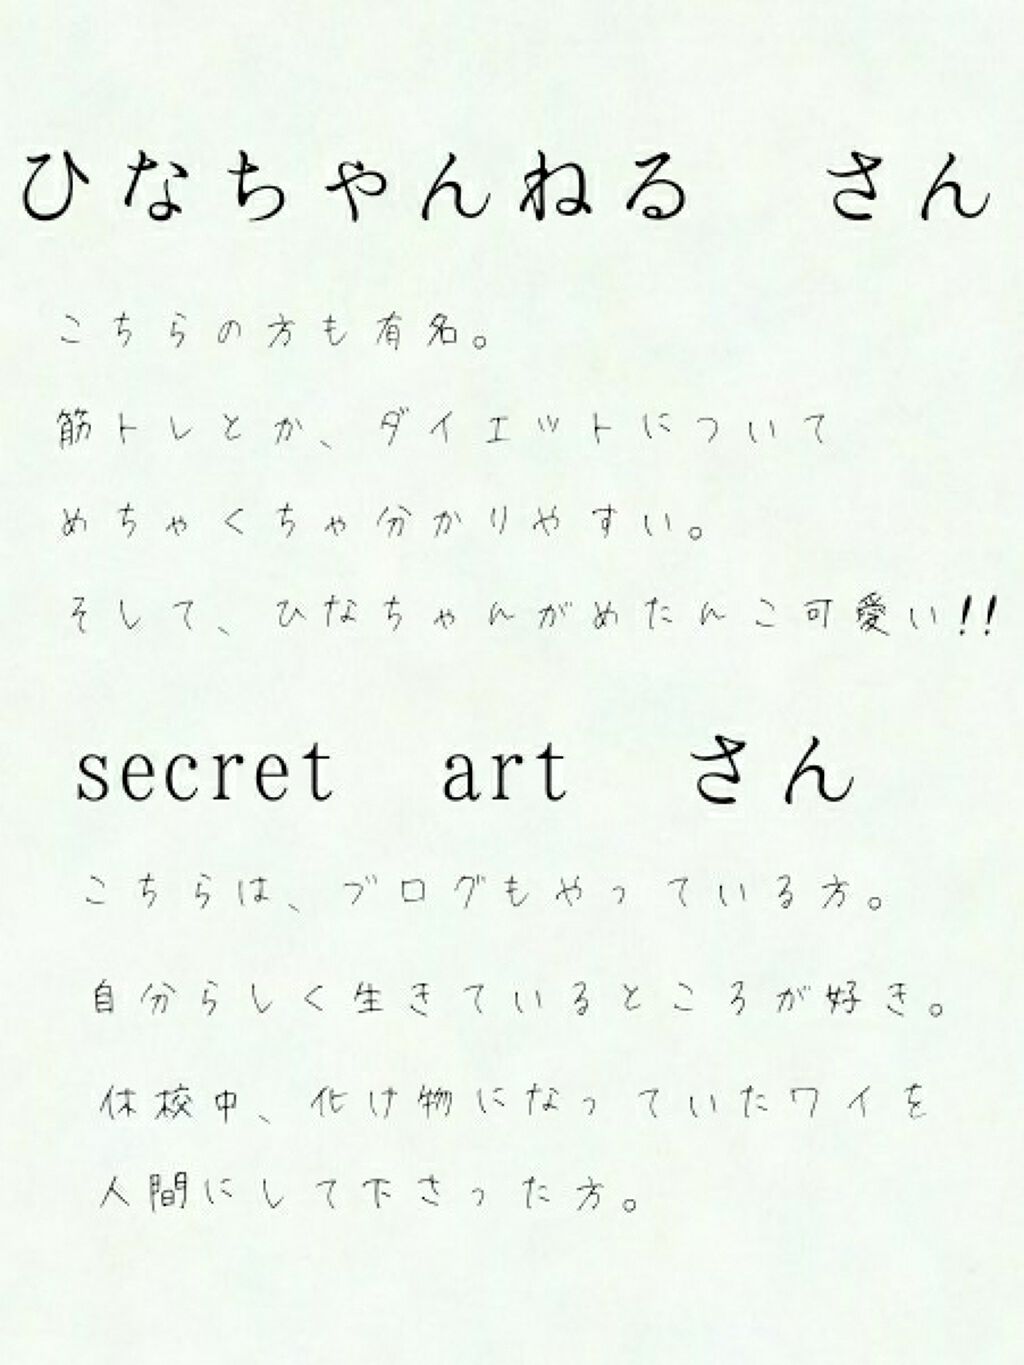 ひなちゃんねる　さん
こちらの方も有名。
筋トレとか、ダイエットについて
めちゃくちゃ分かりやすい。
そして、ひなちゃんがめたんこ可愛い!!
secret　art　さん
こちらは、ブログもやっている方。
自分らしく生きているところが好き。
休校中、化け物になっていたワイを
人間にして下さった方。